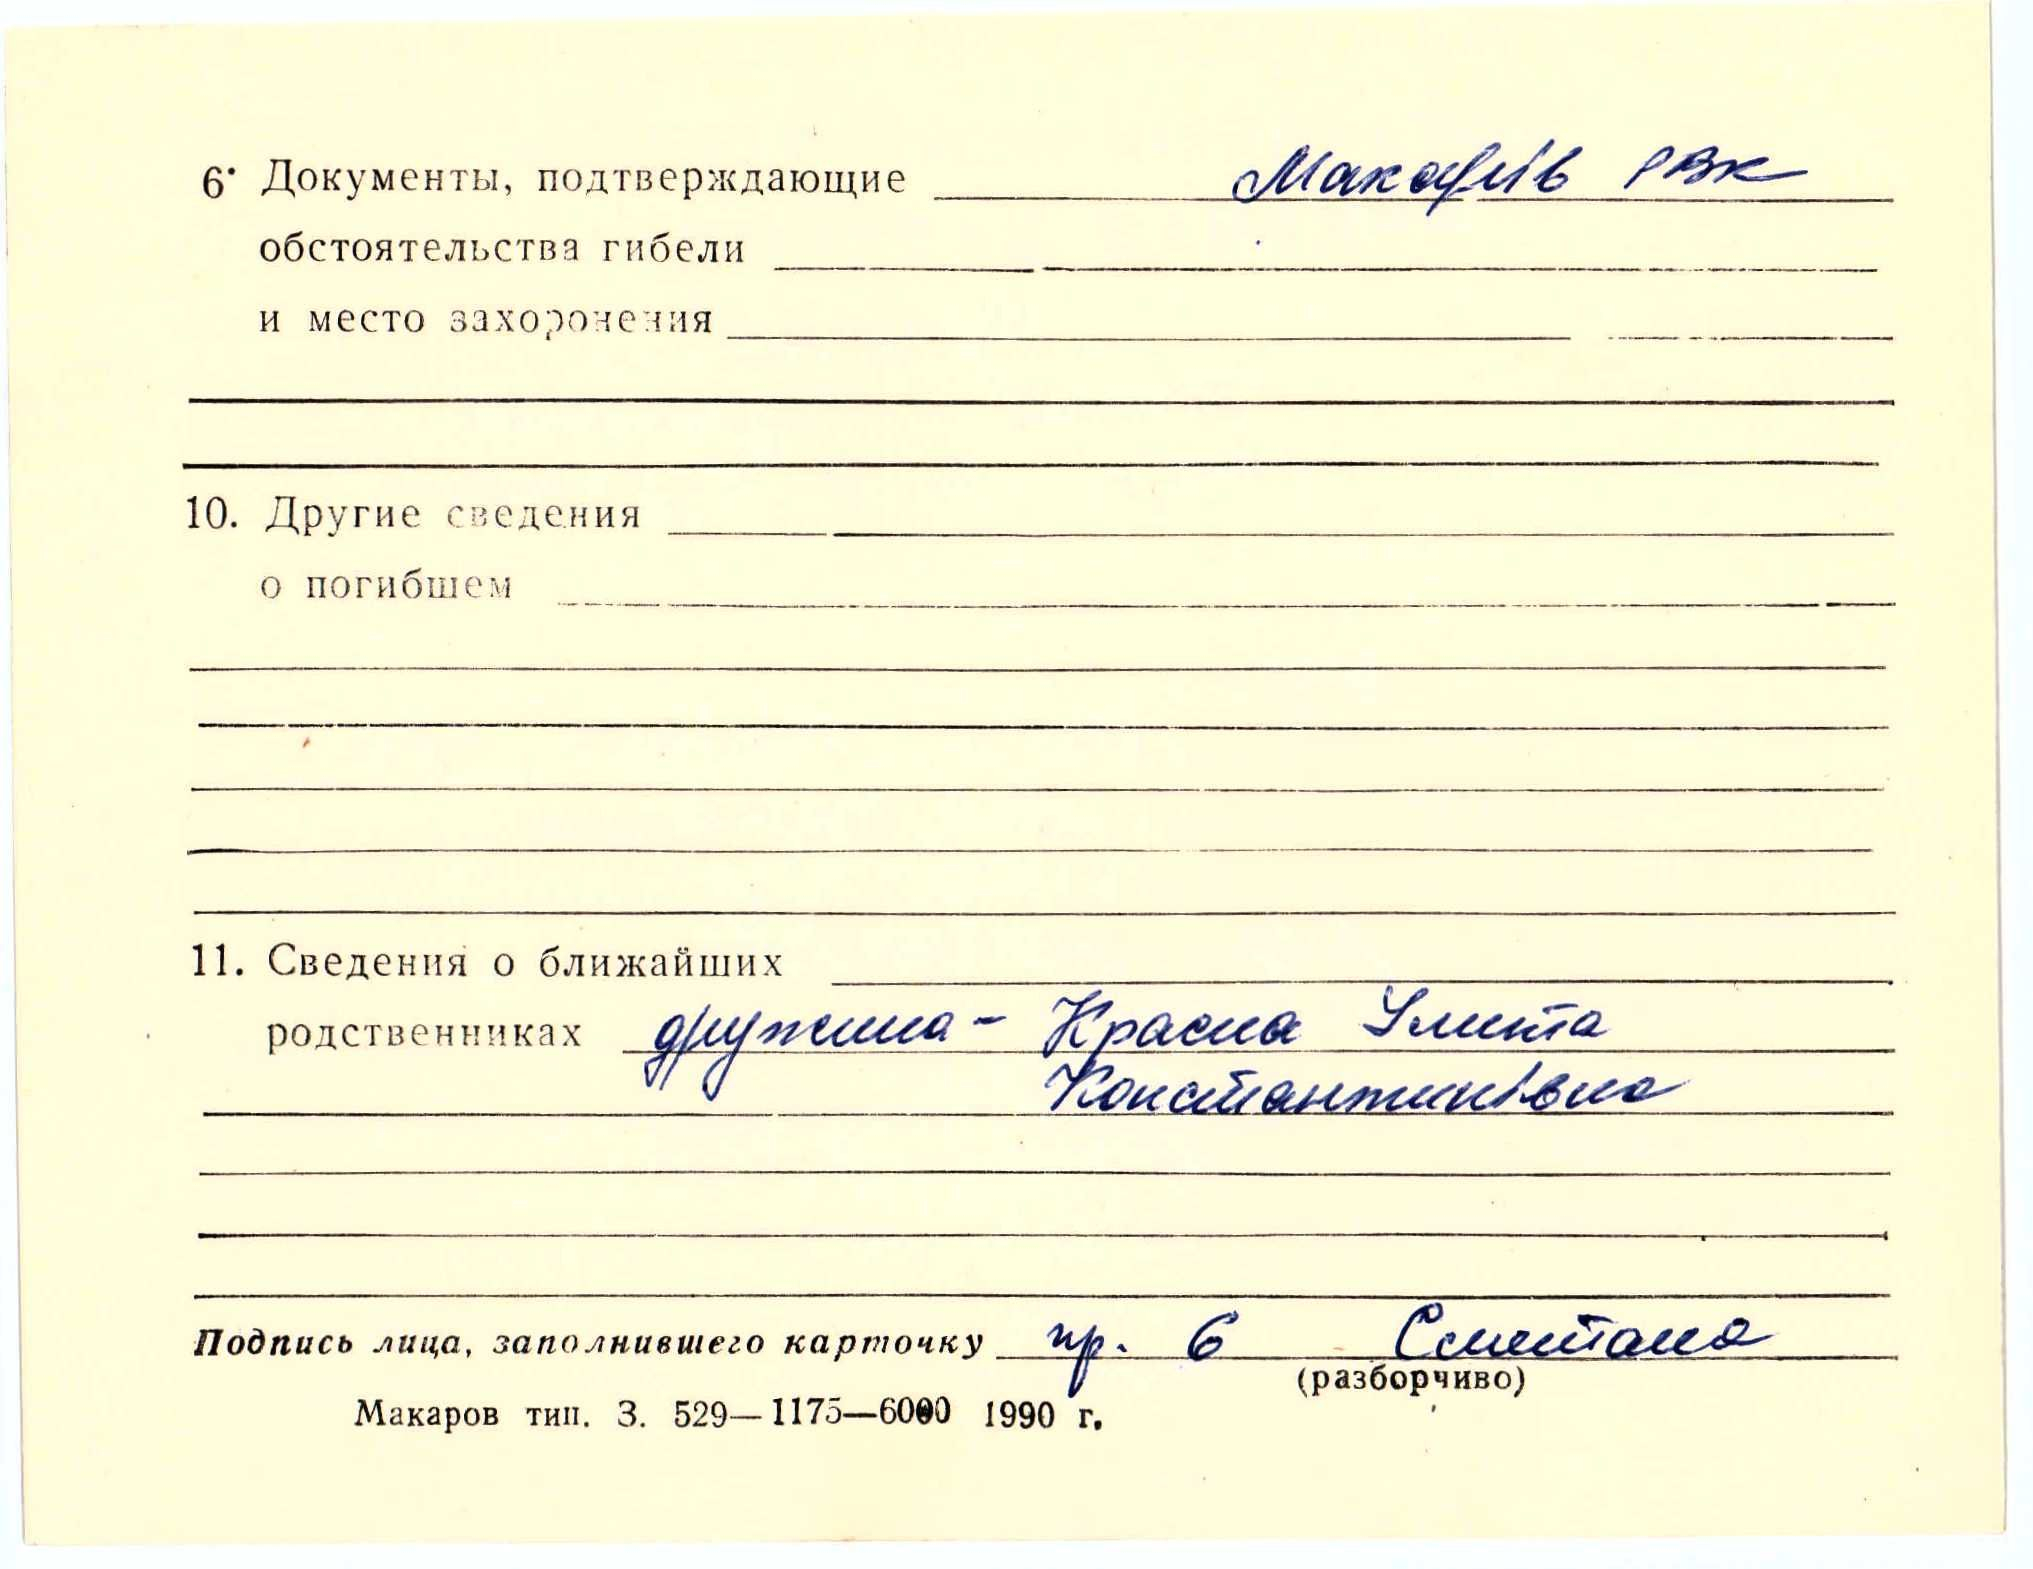 6. Документы, подтверждающие Макарів РВК
обстоятельства гибели
и место захоронения
10. Другие сведения
о погибшем
11. Сведения о ближайших
родственниках дружина - Красна Улита
Константинівна
Подпись лица, заполнившего карточку пр. 6 Сметана
(разборчиво)
Макаров тип. З. 529—1175—6000 1990 г.